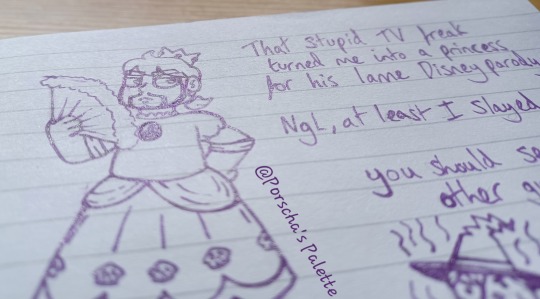 That stupid TV freak
turned me into a princess
for his lame Disney parody
Ngl, at least I slayed
you should
other
@Porscha's Palette